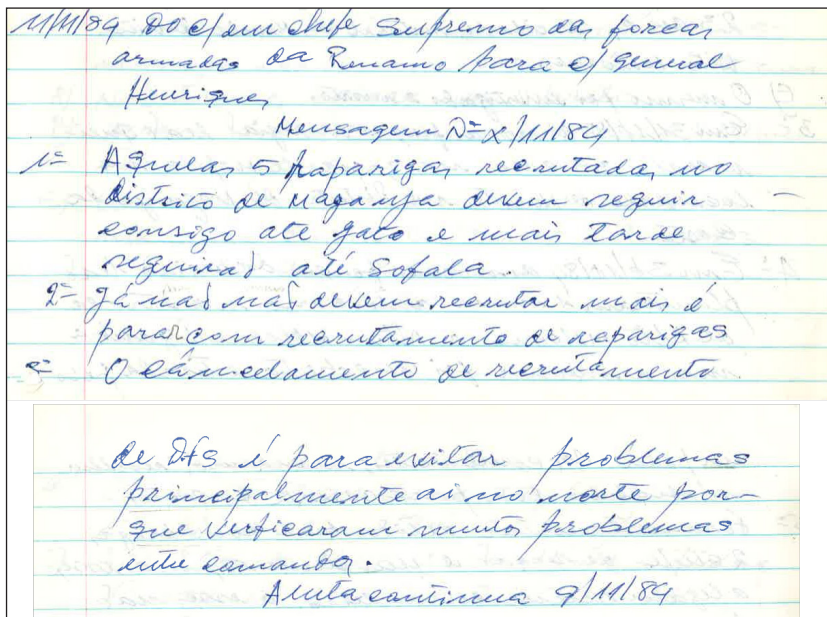 11/11/84 Do c/em chefe Supremo das forças
armadas da Renamo para o/ general
Henrique,
Mensagem Nº x/11/84
1º Aquelas 5 raparigas recrutadas no
distrito de Maganja devem seguir
consigo até gato e mais tarde
seguirad até Sofala.
2º Já nad mas devem recrutar mais é
parar com recrutamento de reparigas
O cancelamento de recrutamento
de Dfs é para evitar problemas
principalmente ai no norte por-
que verficaram muitos problemas
entre comandos.
A luta continua 9/11/84